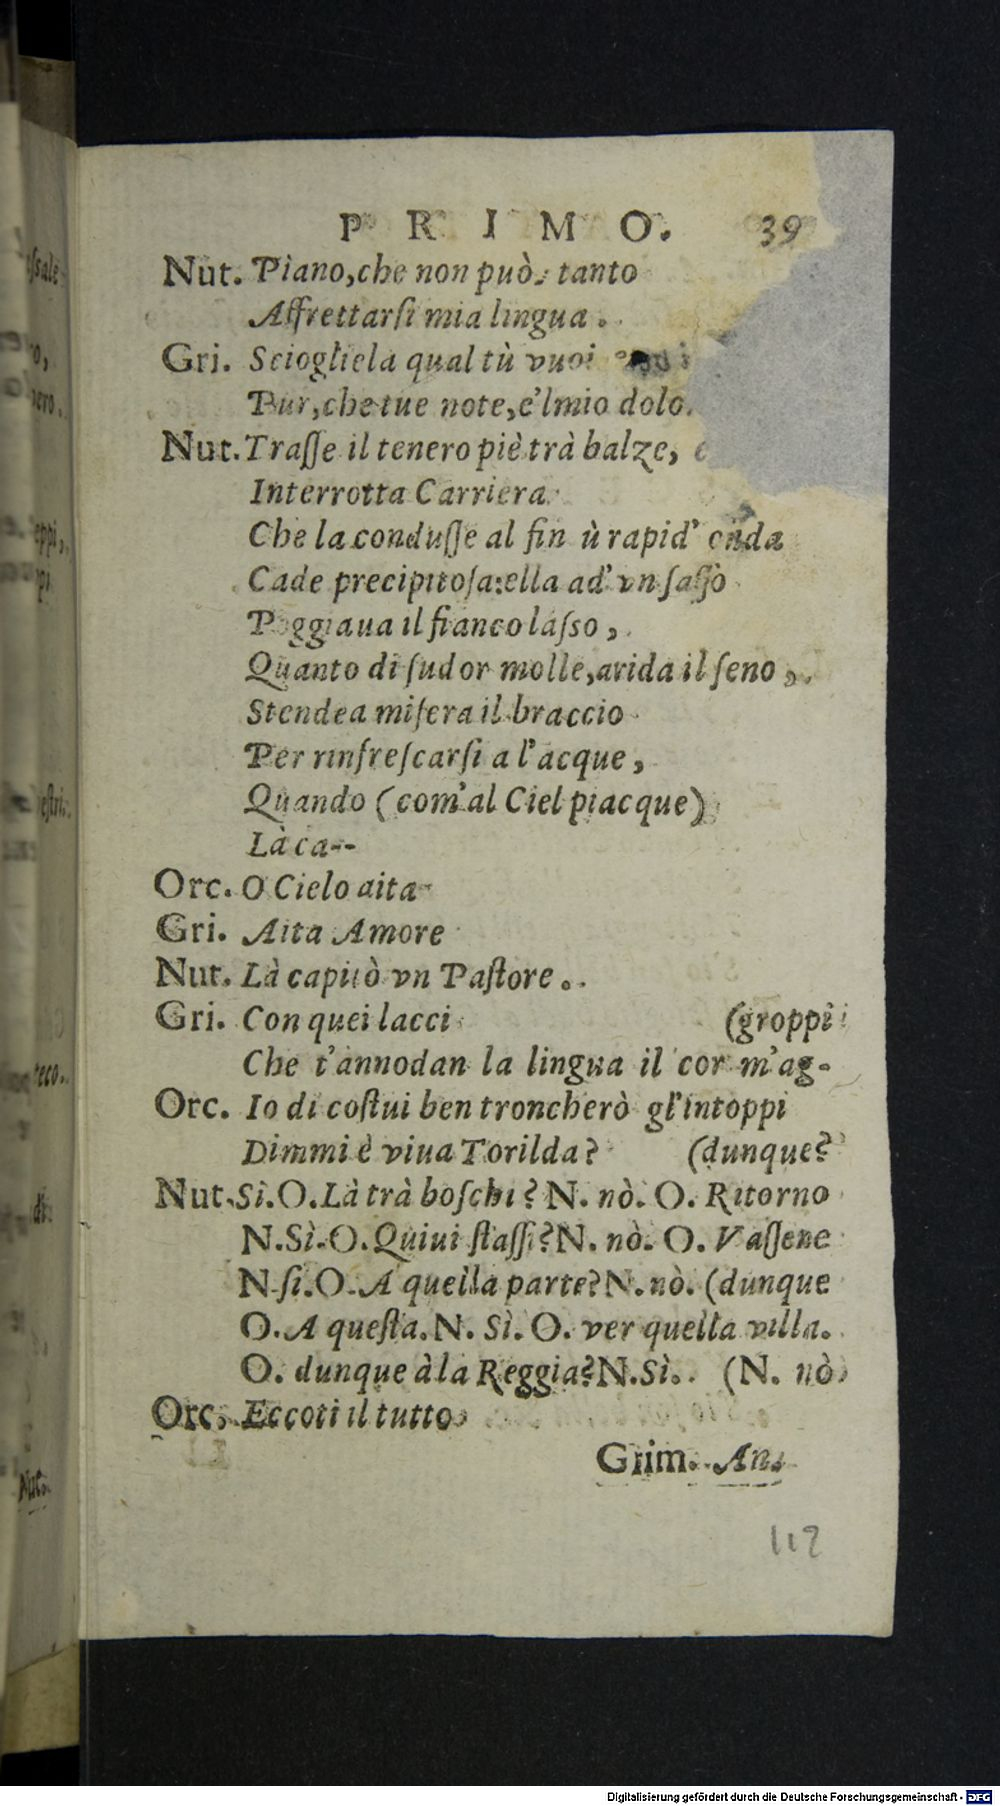 PRIMO. 39
Nut. Piano, che non può tanto
Affrettarſi mia lingua.
Gri. Sciogliela qual tù vuoi
Pur, che tue note, e'l mio dolo
Nut. Traſſe il tenero piè trà balze, e
Interrotta Carriera
Che la conduſſe al fin ù rapid' onda
Cade precipitoſa: ella ad' vn ſaſſo
Poggiaua il fianco laſso,
Quanto di ſudor molle, arida il ſeno,
Stendea miſera il braccio
Per rinfreſcarſi a l'acque,
Quando (com'al Ciel piacque)
Là ca--
Orc. O Cielo aita
Gri. Aita Amore
Nut. Là capitò vn Paſtore.
Gri. Con quei lacci (groppi
Che t'annodan la lingua il cor m'ag-
Orc. Io di coſtui ben troncherò gl'intoppi
Dimmi è viua Torilda? (dunque?
Nut. Sì. O. Là trà boſchi? N. nò. O. Ritorno
N. Sì. O. Quiui ſtaſſi? N. nò. O. Vaſſene
N. ſì. O. A quella parte? N. nò. (dunque
O. A queſta. N. Sì. O. ver quella villa.
O. dunque à la Reggia? N. Sì. (N. nò
Orc. Eccoti il tutto
Grim. An.
117
Digitalisierung gefördert durch die Deutsche Forschungsgemeinschaft - DFG